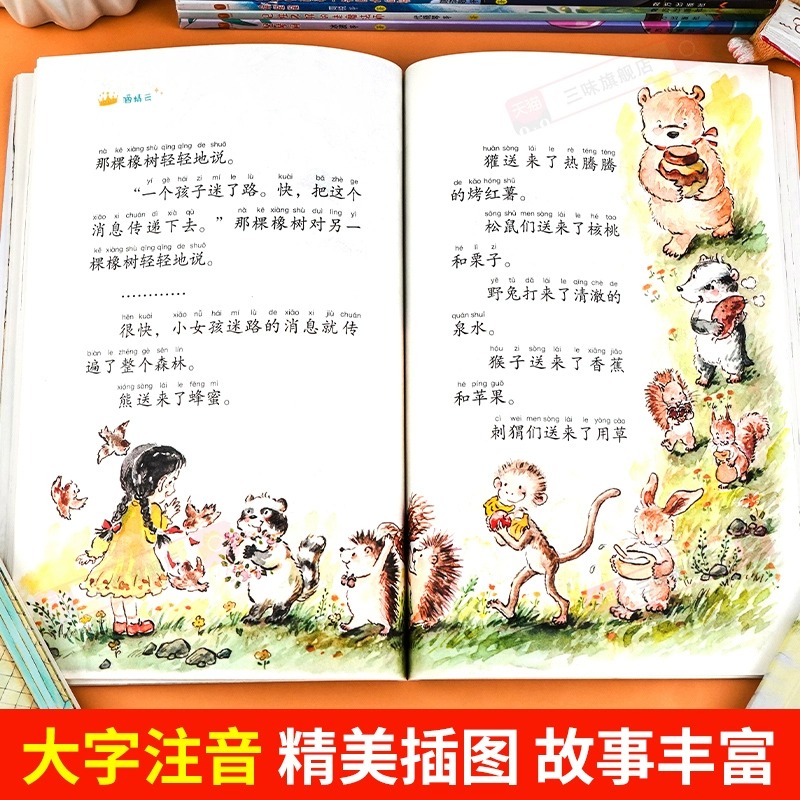 天猫 三味旗舰店
nà kē xiàng shù qīng qīng de shuō
那棵橡树轻轻地说。
yí gè hái zi mí le lù kuài bǎ zhè ge
“一个孩子迷了路。快，把这个
xiāo xi chuán dì xià qù nà kē xiàng shù duì lìng yì
消息传递下去。”那棵橡树对另一
kē xiàng shù qīng qīng de shuō
棵橡树轻轻地说。
…………
hěn kuài xiǎo nǚ hái mí lù de xiāo xi jiù chuán
很快，小女孩迷路的消息就传
biàn le zhěng gè sēn lín
遍了整个森林。
xióng sòng lái le fēng mì
熊送来了蜂蜜。
huān sòng lái le rè téng téng
獾送来了热腾腾
de kǎo hóng shǔ
的烤红薯。
sōng shǔ men sòng lái le hé tao
松鼠们送来了核桃
hé lì zi
和栗子。
yě tù dǎ lái le qīng chè de
野兔打来了清澈的
quán shuǐ
泉水。
hóu zi sòng lái le xiāng jiāo
猴子送来了香蕉
hé píng guǒ
和苹果。
cì wei men sòng lái le yòng cǎo
刺猬们送来了用草
大字注音 精美插图 故事丰富